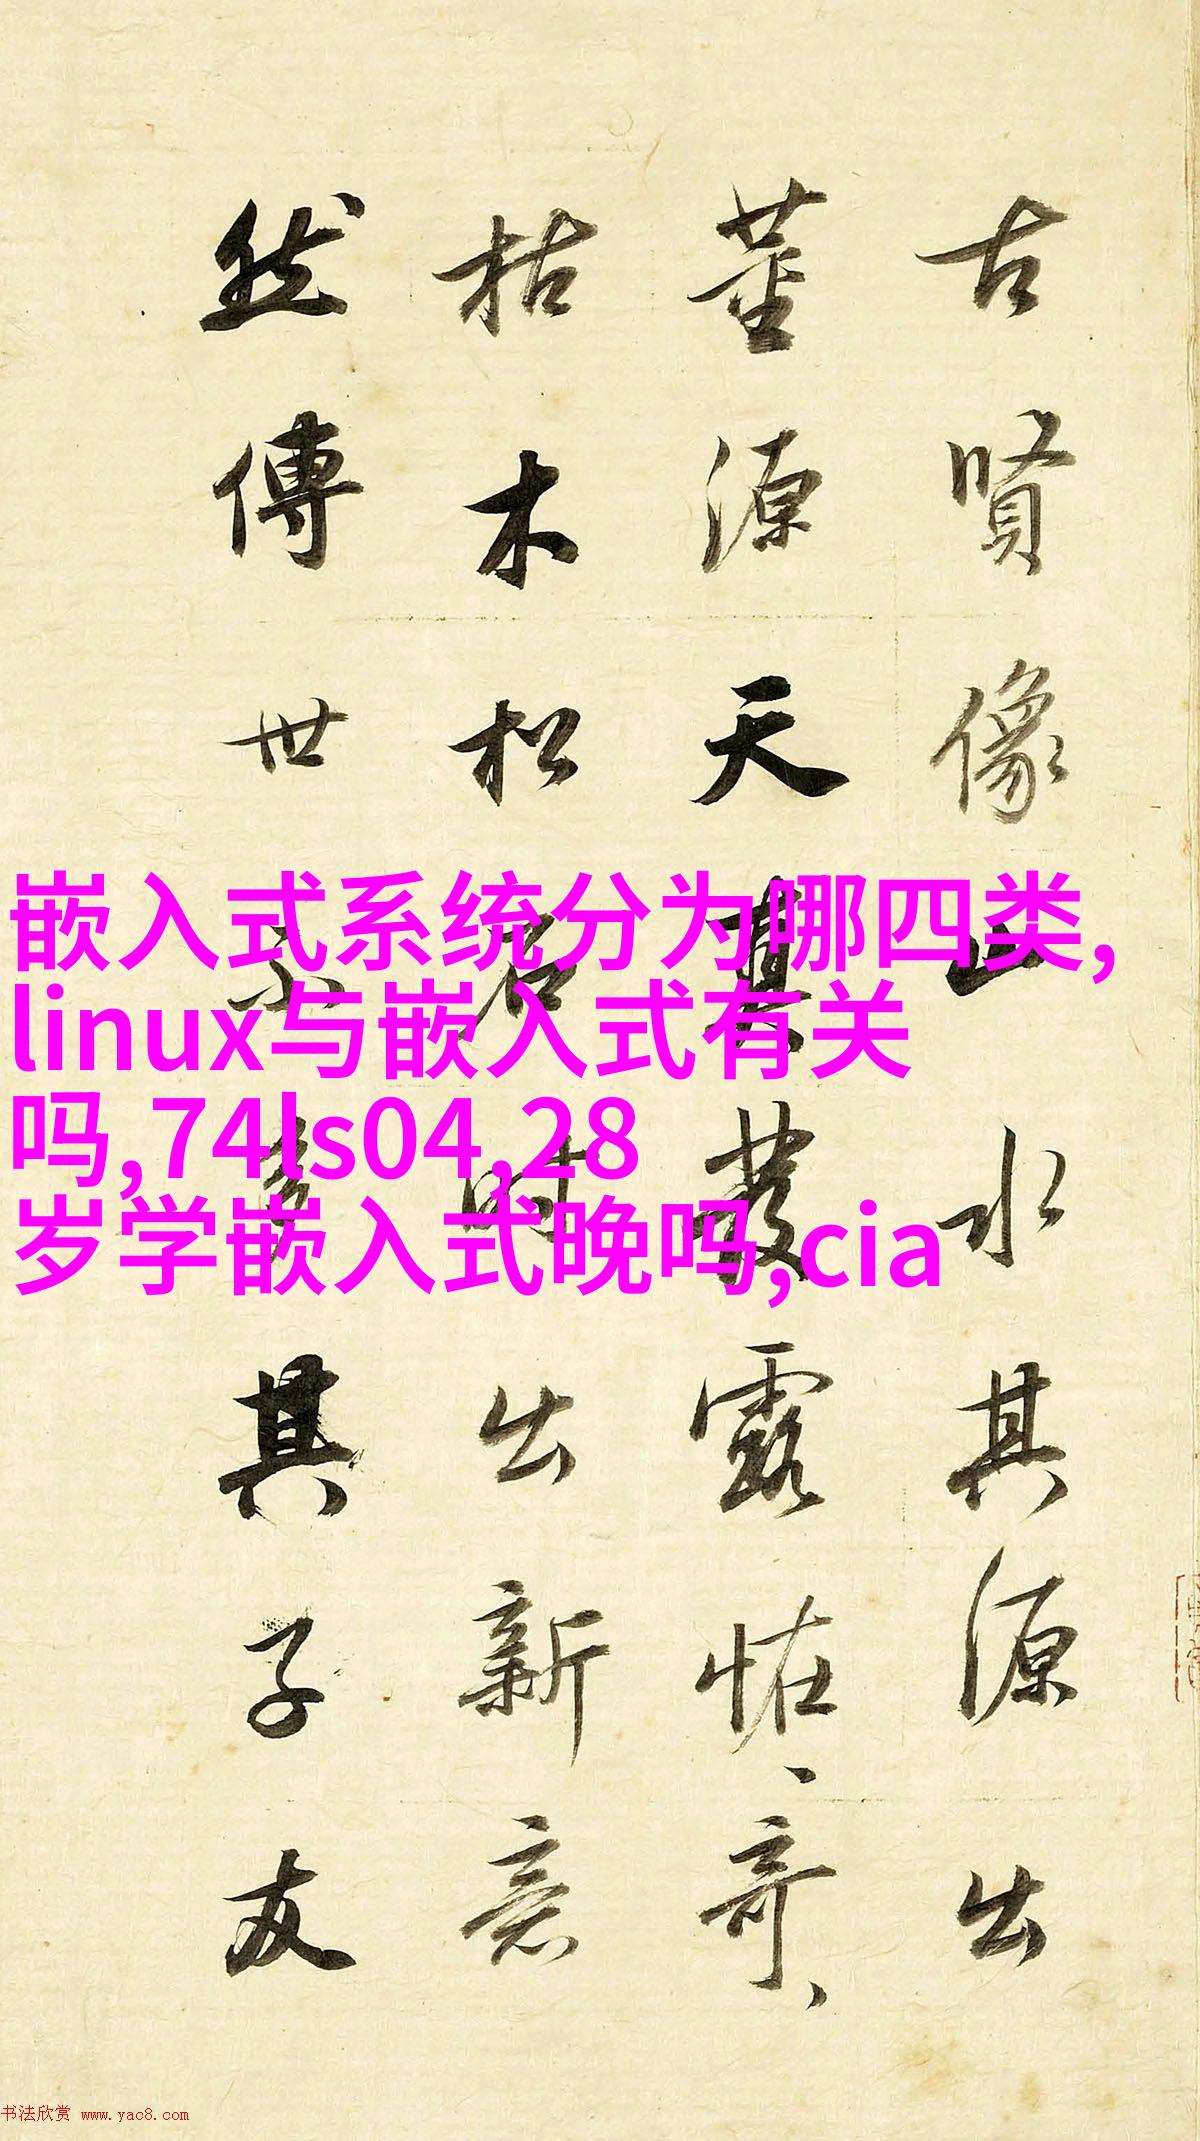 嵌入式系统分为哪四类,
linux与嵌入式有关
吗,74ls04,28
岁学嵌入式晚吗,cia
古賢像山水其源出
董源天真發露恠奇
枯木松石時出新意
然傳世不多其子友
书法欣赏 www.yac8.com